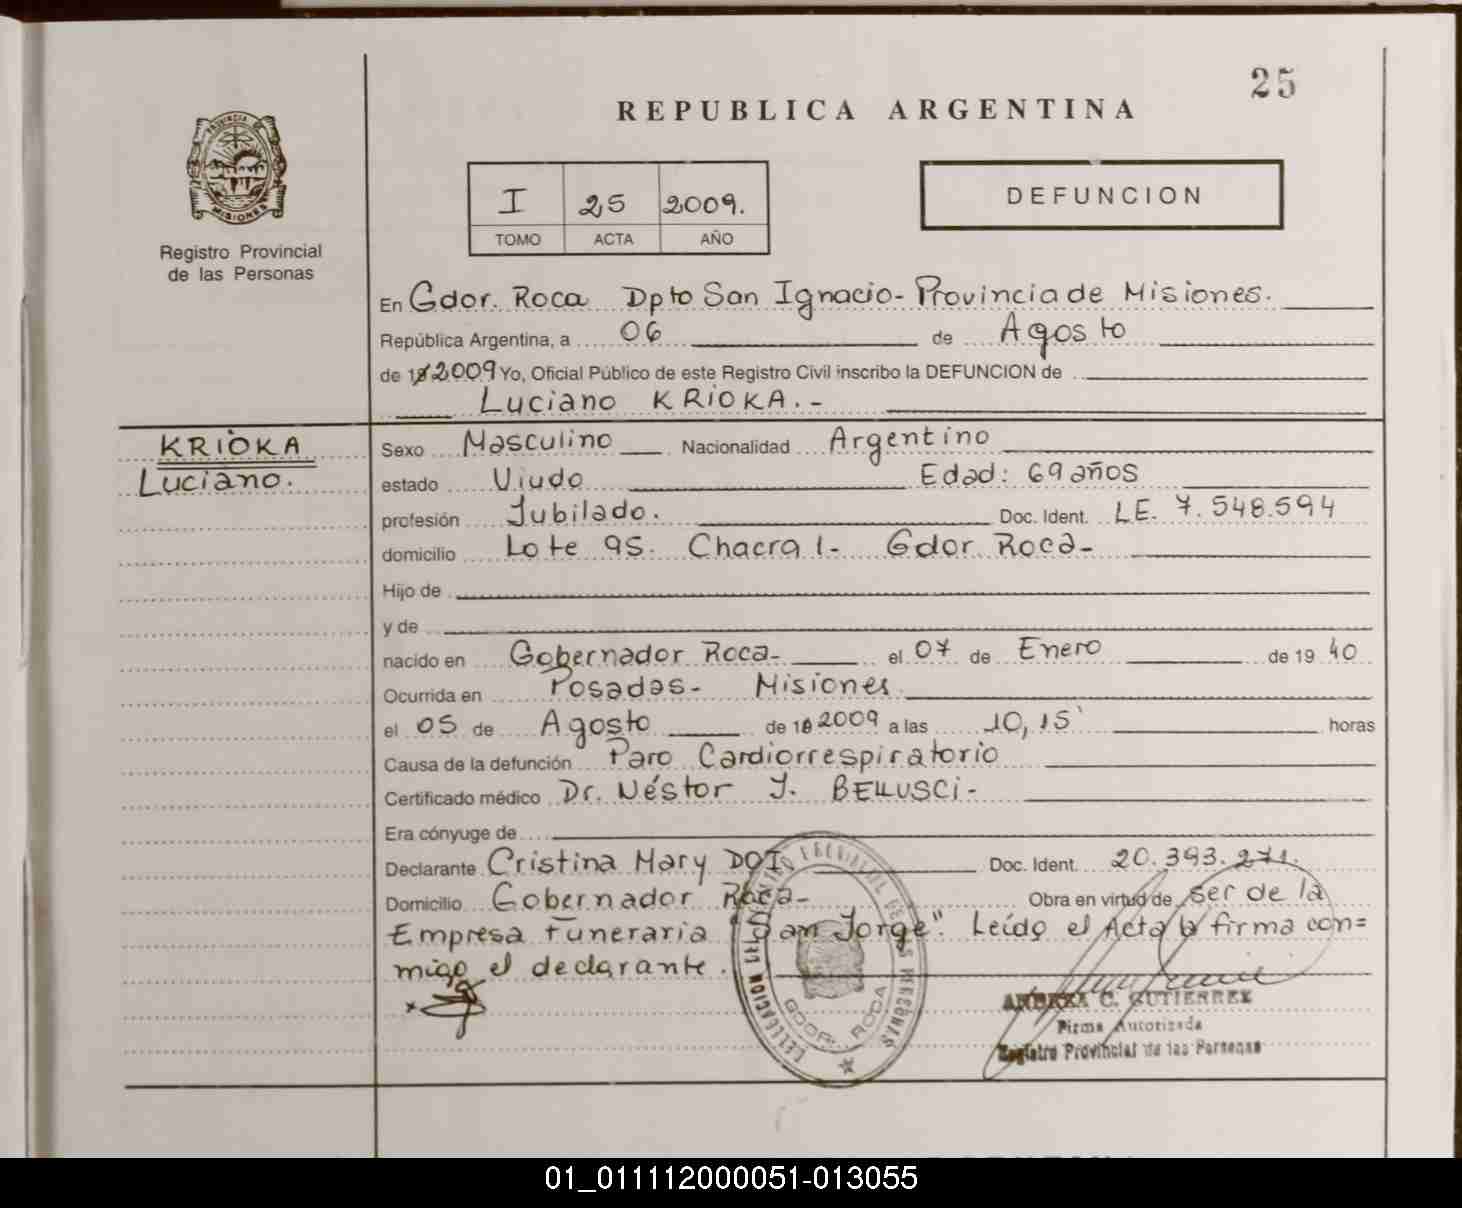 25
REPUBLICA ARGENTINA
PROVINCIA DE
MISIONES
Registro Provincial
de las Personas
I 25 2009.
TOMO ACTA AÑO
DEFUNCION
En Gdor. Roca Dpto San Ignacio - Provincia de Misiones.
República Argentina, a 06 de Agosto
de 2009 Yo, Oficial Público de este Registro Civil inscribo la DEFUNCION de
Luciano KRIOKA. -
KRIOKA
Luciano.
Sexo Masculino Nacionalidad Argentino
estado Viudo Edad: 69 años
profesión Jubilado. Doc. Ident. LE. 7.548.594
domicilio Lote 95. Chacra 1- Gdor Roca-
Hijo de
y de
nacido en Gobernador Roca- el 07 de Enero de 19 40
Ocurrida en Posadas- Misiones
el 05 de Agosto de 2009 a las 10,15' horas
Causa de la defunción Paro Cardiorrespiratorio
Certificado médico Dr. Néstor J. BELLUSCi -
Era cónyuge de
Declarante Cristina Mary DOI Doc. Ident. 20.393.271.
Domicilio Gobernador Roca- Obra en virtud de ser de la
Empresa Funeraria "San Jorge". Leído el Acta la firma con=
migo el declarante.
DELEGACION DEL REGISTRO PROVINCIAL DE LAS PERSONAS
GDOR. ROCA
C. GUTIERREZ
Firma Autorizada
Registro Provincial de las Personas
01_011112000051-013055